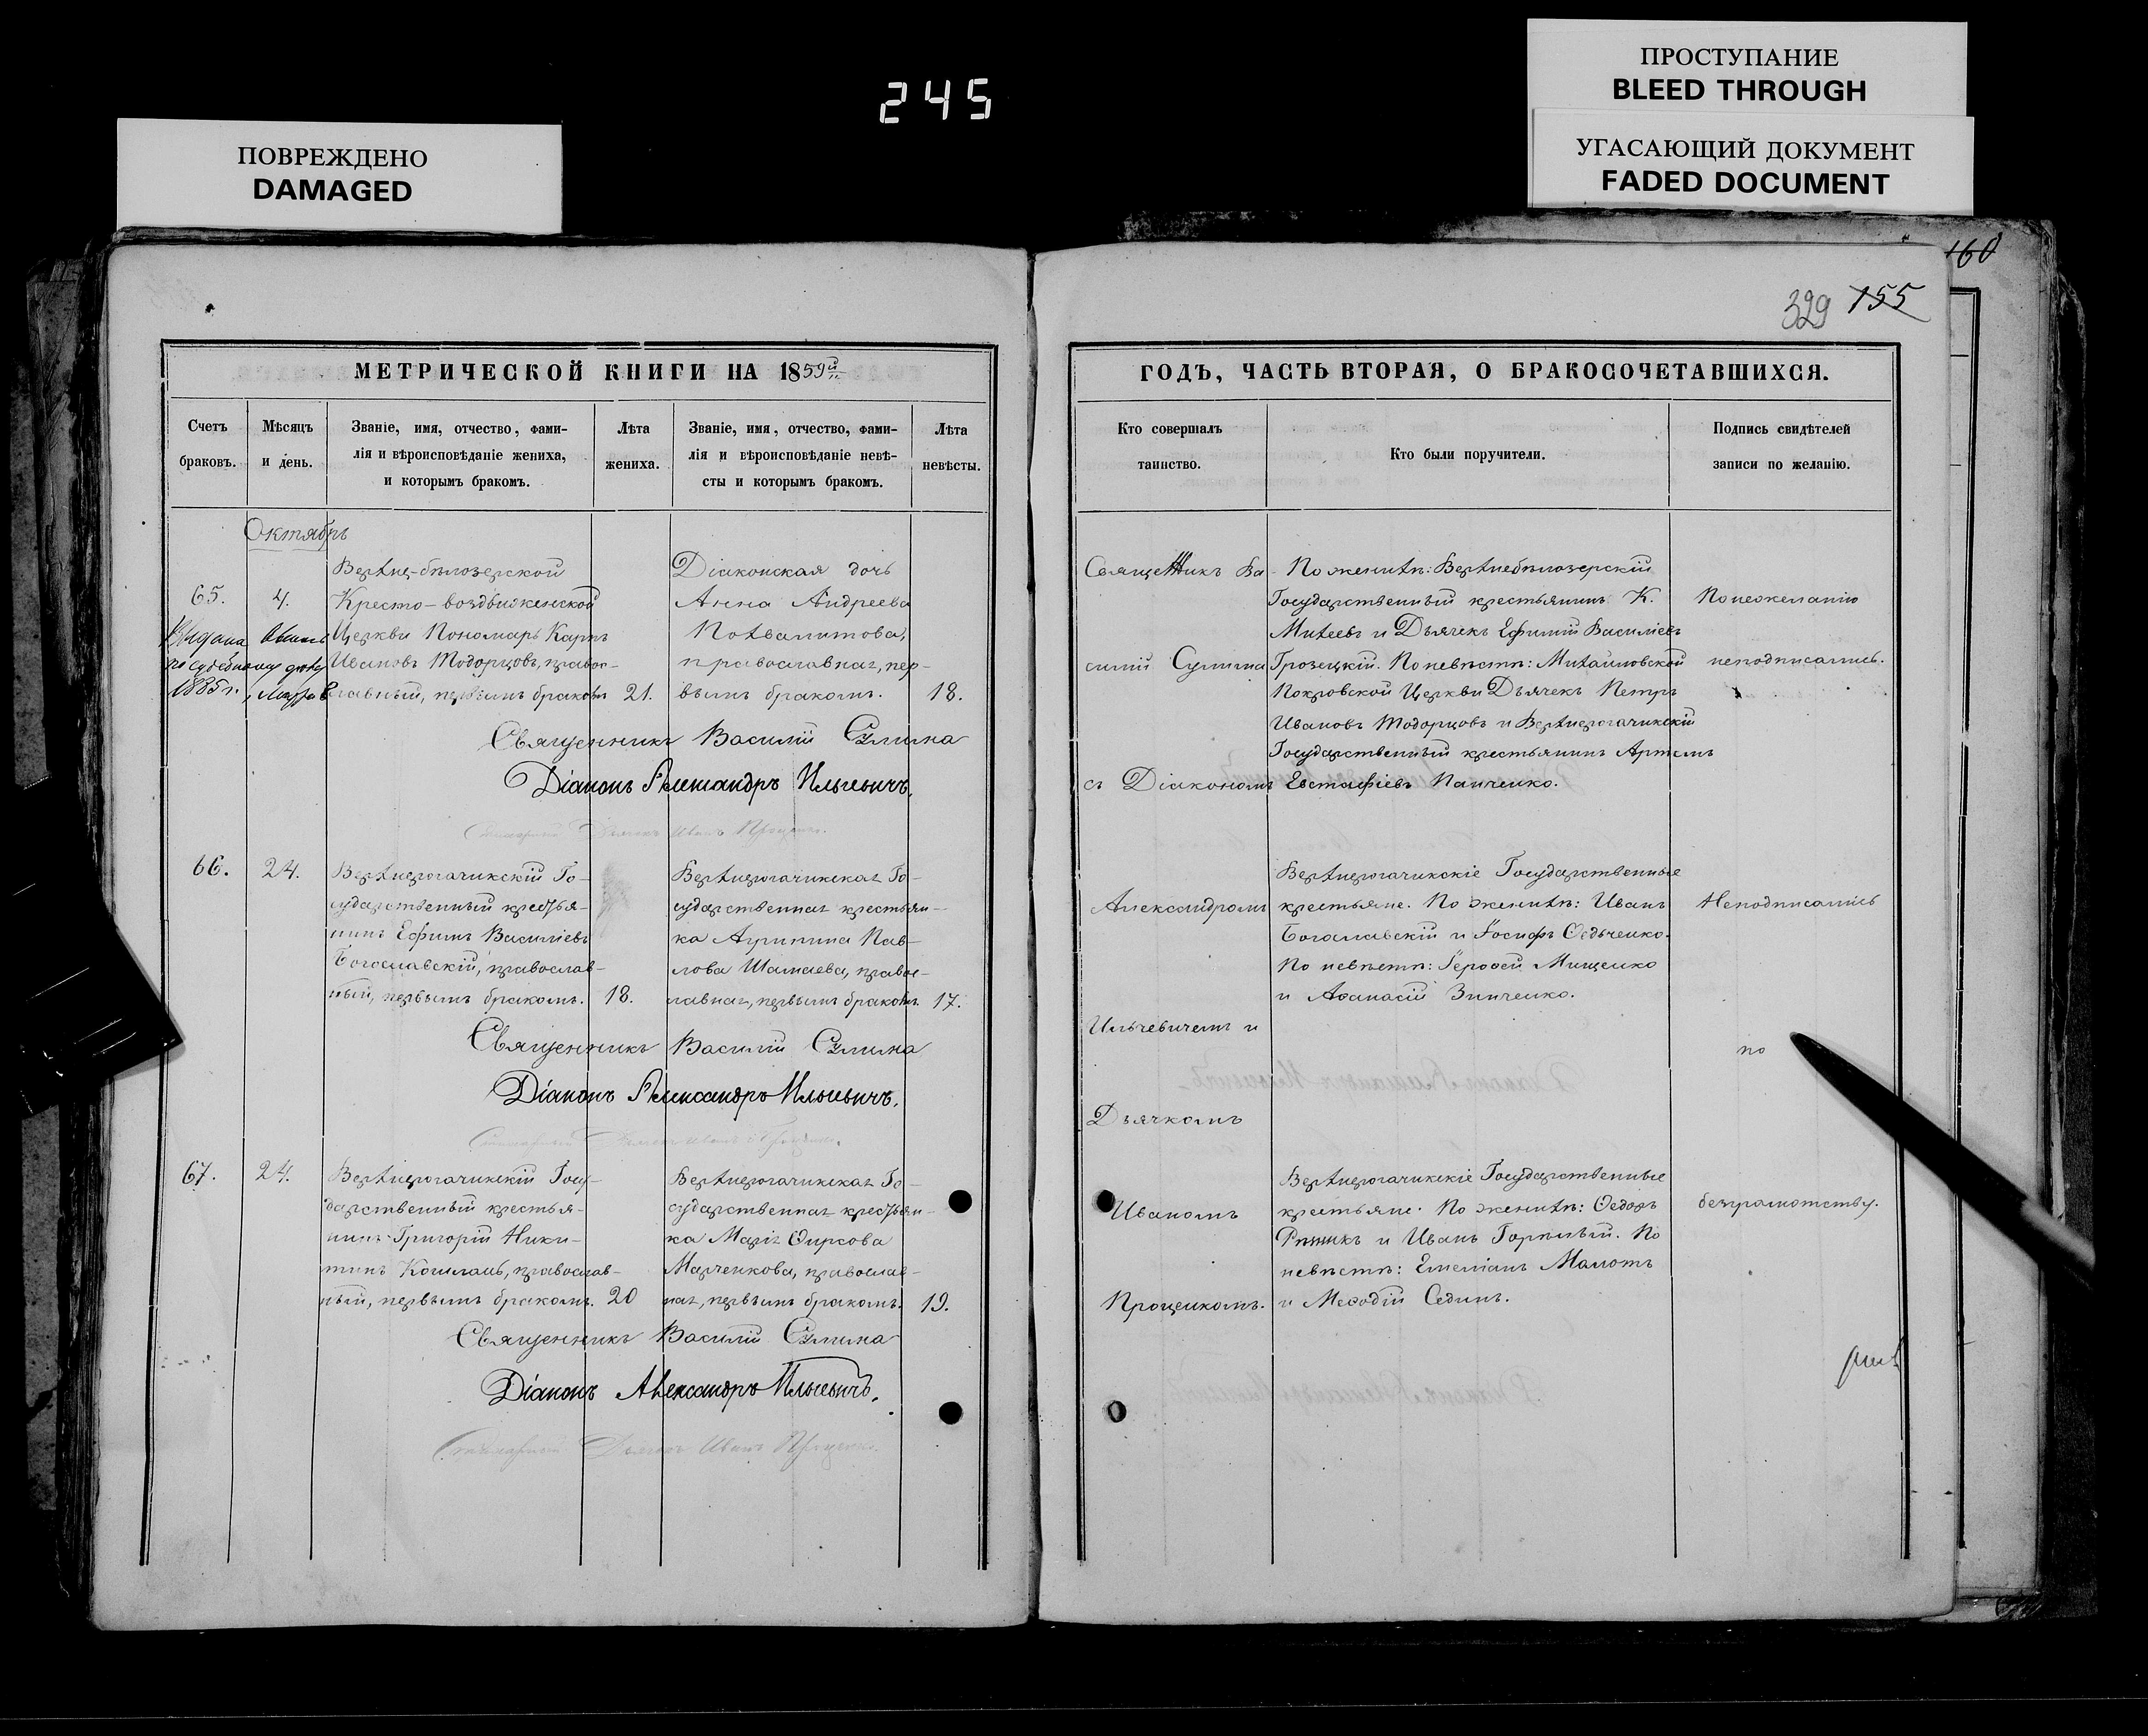 ПРОСТУПАНИЕ
BLEED THROUGH
УГАСАЮЩИЙ ДОКУМЕНТ
FADED DOCUMENT
245
ПОВРЕЖДЕНО
DAMAGED
160
329 155
МЕТРИЧЕСКОЙ КНИГИ НА 1859й
Счетъ
браковъ.
Мѣсяцъ
и день.
Званіе, имя, отчество, фами-
лія и вѣроисповѣданіе жениха,
и которымъ бракомъ.
Лѣта
жениха.
Званіе, имя, отчество, фами-
лія и вѣроисповѣданіе невѣ-
сты и которымъ бракомъ.
Лѣта
невѣсты.
Октябрь
65.
4.
Верхне-бѣлозерской
Кресто-воздвиженской
Церкви Пономарь Карпъ
Ивановъ Тодорцовъ, правос-
лавный, первымъ бракомъ
21.
Діаконская дочь
Анна Андреева
Похвалитова,
православная, пер-
вымъ бракомъ.
18.
Выдана
по судебному дѣлу
1885 г.
Священникъ Василій Сулима
Діаконъ Александръ Ильчевичъ.
Дьячокъ Иванъ Проценко.
66.
24.
Верхнерогачикскій Го-
сударственный крестья-
нинъ Ефимъ Василіевъ
Богославскій, православ-
ный, первымъ бракомъ.
18.
Верхнерогачикская Го-
сударственная крестьян-
ка Агрипина Пав-
лова Шамаева, правос-
лавная, первымъ бракомъ.
17.
Священникъ Василій Сулима
Діаконъ Александръ Ильчевичъ.
67.
24.
Верхнерогачикскій Госу-
дарственный крестья-
нинъ Григорій Ники-
тинъ Кошлань, православ-
ный, первымъ бракомъ.
20
Верхнерогачикская Го-
сударственная крестьян-
ка Марія Фирсова
Марченкова, православ-
ная, первымъ бракомъ.
19.
Священникъ Василій Сулима
Діаконъ Александръ Ильчевичъ.
Дьячокъ Иванъ Проценко.
ГОДЪ, ЧАСТЬ ВТОРАЯ, О БРАКОСОЧЕТАВШИХСЯ.
Кто совершалъ
таинство.
Кто были поручители.
Подпись свидѣтелей
записи по желанію.
Священникъ Ва-
силій Сулима
съ Діакономъ
Александромъ
Ильчевичемъ и
Дьячкомъ
Иваномъ
Проценкомъ.
По женихѣ: Верхнебѣлозерскій
Государственный крестьянинъ К.
Михеевъ и Дьячекъ Ефимій Василіевъ
Грозецкій. По невѣстѣ: Михайловской
Покровской Церкви Дьячекъ Петръ
Ивановъ Тодорцовъ и Верхнерогачикскій
Государственный крестьянинъ Артемъ
Евстафіевъ Панченко.
По нежеланію
неподписались.
Верхнерогачикскіе Государственные
крестьяне. По женихѣ: Иванъ
Богославскій и Іосифъ Федченко.
По невѣстѣ: Герасей Мищенко
и Афанасій Зинченко.
Неподписались
по
Верхнерогачикскіе Государственные
крестьяне. По женихѣ: Федоръ
Рѣзникъ и Иванъ Горпилый. По
невѣстѣ: Емеліанъ Мамотъ
и Мефодій Сединъ.
безграмотству.